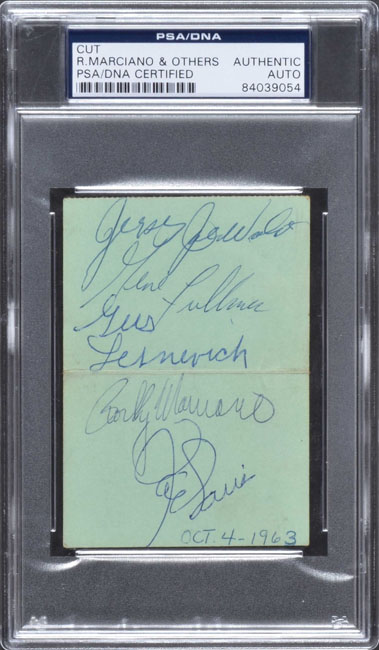 PSA/DNA
CUT
R.MARCIANO & OTHERS AUTHENTIC
PSA/DNA CERTIFIED AUTO
84039054
Jersey Joe Walcott
Gene Fullmer
Gus
Lesnevich
Rocky Marciano
Joe Louis
OCT. 4-1963